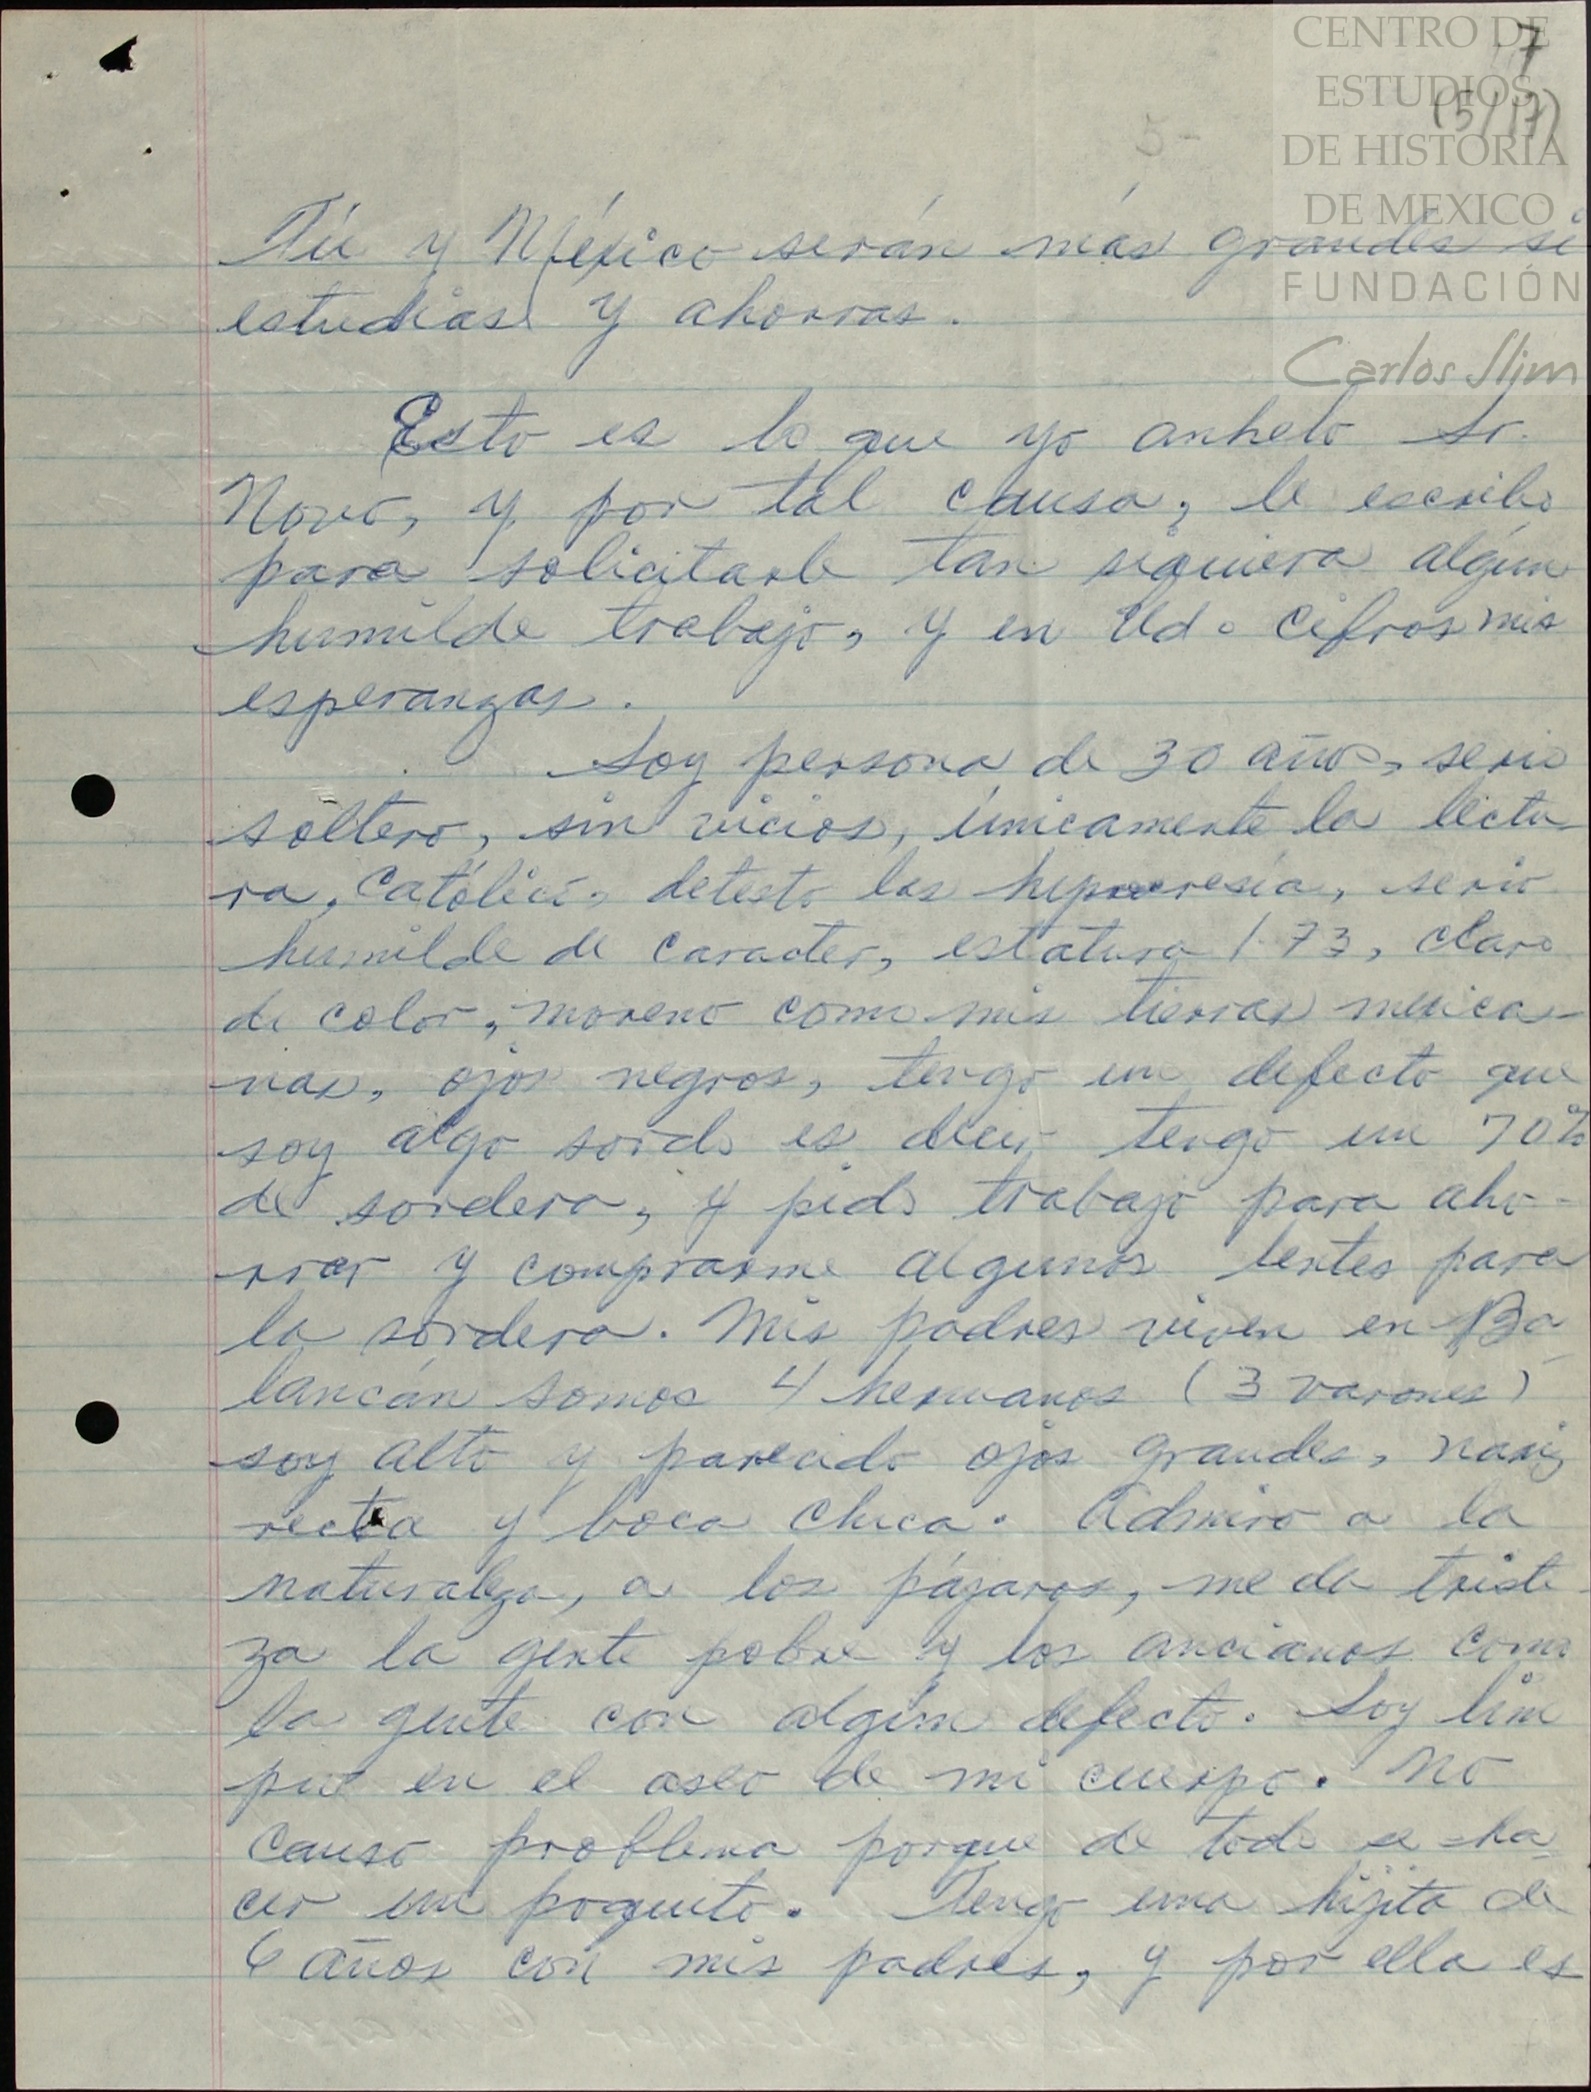 CENTRO DE
ESTUDIOS
DE HISTORIA
DE MEXICO
FUNDACIÓN
Carlos Slim
7
(5/17)
5-
Tú y México serán más grandes si
estudias y ahorras.
Esto es lo que yo anhelo Sr.
Novo, y por tal causa, le escribo
para solicitarle tan siquiera algún
humilde trabajo, y en Ud. cifros mis
esperanzas.
Soy persona de 30 años, serio
soltero, sin vicios, únicamente la lectu-
ra, Católico, detesto las hipocresía, serio
humilde de caracter, estatura 1.73, claro
de color, moreno como mis tierras mexica-
nas, ojos negros, tengo un defecto que
soy algo sordo es decir tengo un 70%
de sordera, y pido trabajo para aho-
rrar y comprarme algunos lentes para
la sordera. Mis padres viven en Ba-
lancán somos 4 hermanos (3 varones)
soy alto y parecido ojos grandes, nariz
recta y boca chica. Admiro a la
naturaleza, a los pájaros, me da triste-
za la gente pobre y los ancianos como
la gente con algún defecto. Soy lim
pio en el aseo de mi cuerpo. No
causo problema porque de todo se ha-
cer un poquito. Tengo una hijita de
6 años con mis padres, y por ella es